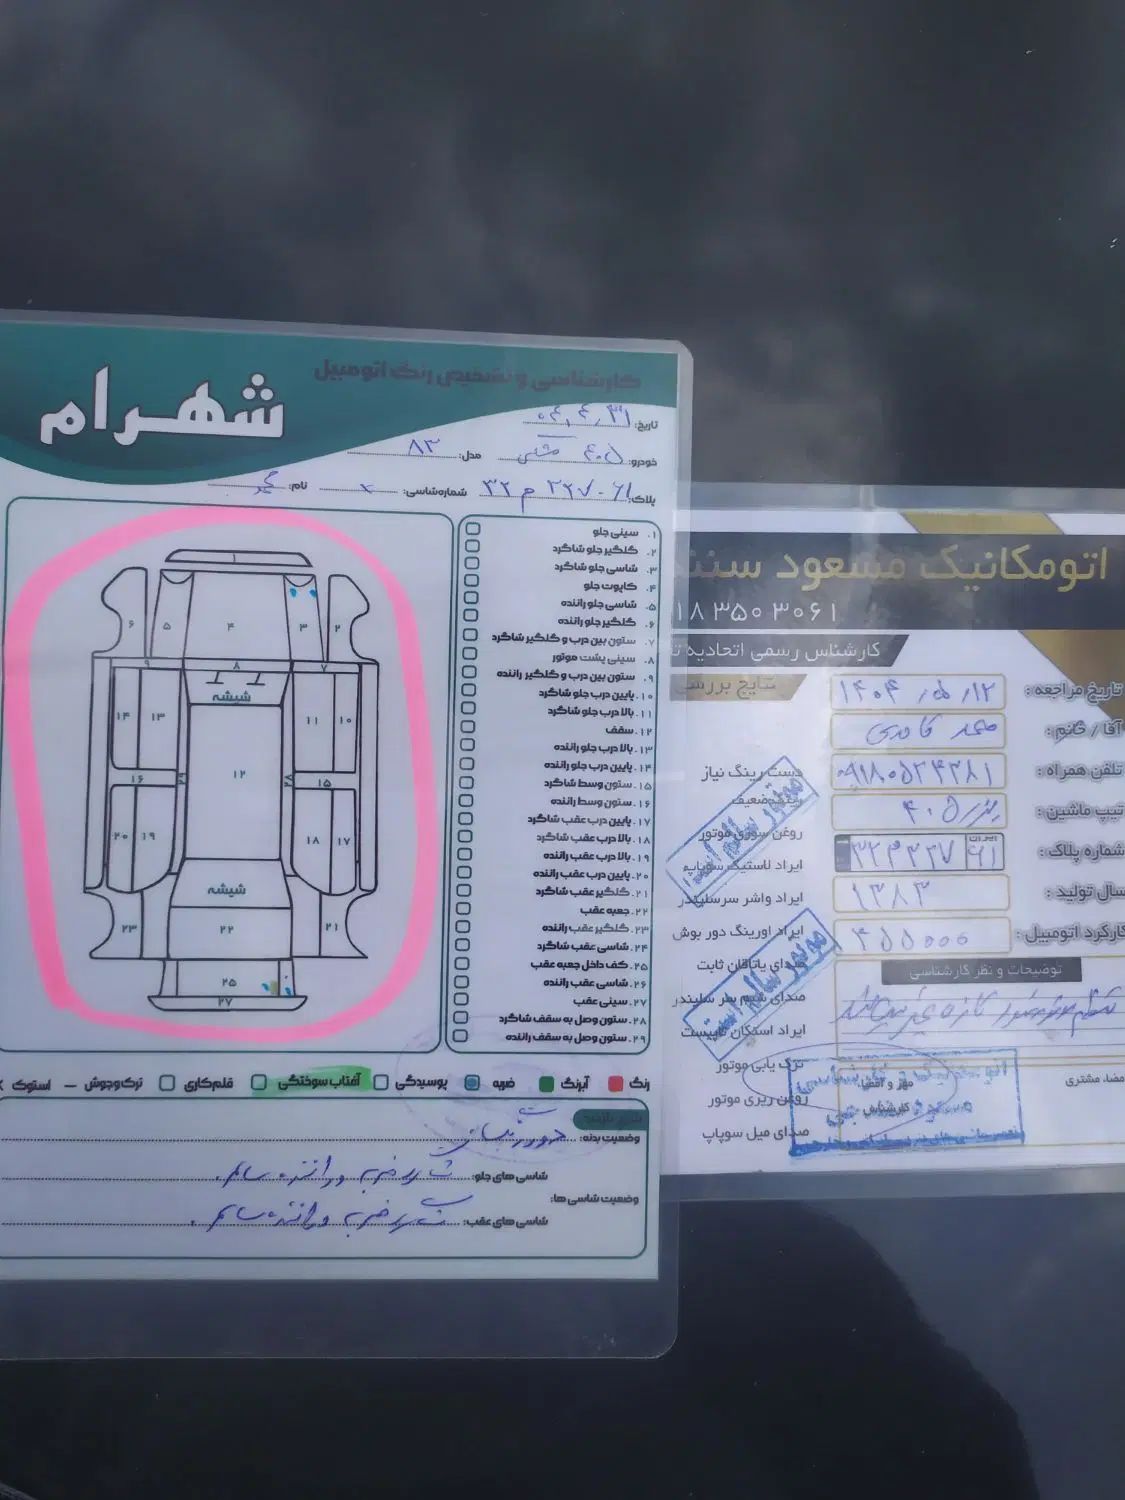 کارشناسی و تشخیص رنگ اتومبیل
شهرام
تاریخ: ۰۴,۴,۳۱
خودرو: ۴۰۵ مشکی مدل: ۸۳
پلاک: ۶۱-۲۲۷ م ۳۲ شماره شاسی: نام:
۱. سینی جلو
۲. گلگیر جلو شاگرد
۳. شاسی جلو شاگرد
۴. کاپوت جلو
۵. شاسی جلو راننده
۶. گلگیر جلو راننده
۷. ستون بین درب و گلگیر شاگرد
۸. سینی پشت موتور
۹. ستون بین درب و گلگیر راننده
۱۰. پایین درب جلو شاگرد
۱۱. بالا درب جلو شاگرد
۱۲. سقف
۱۳. بالا درب جلو راننده
۱۴. پایین درب جلو راننده
۱۵. ستون وسط شاگرد
۱۶. ستون وسط راننده
۱۷. پایین درب عقب شاگرد
۱۸. بالا درب عقب شاگرد
۱۹. بالا درب عقب راننده
۲۰. پایین درب عقب راننده
۲۱. گلگیر عقب شاگرد
۲۲. جعبه عقب
۲۳. گلگیر عقب راننده
۲۴. شاسی عقب شاگرد
۲۵. کف داخل جعبه عقب
۲۶. شاسی عقب راننده
۲۷. سینی عقب
۲۸. ستون وصل به سقف شاگرد
۲۹. ستون وصل به سقف راننده
۱
۶ ۵ ۴ ۳ ۲
۹ ۸ ۷
شیشه
۱۴ ۱۳ ۱۱ ۱۰
۱۲
۱۶ ۲۹ ۲۸ ۱۵
۲۰ ۱۹ ۱۸ ۱۷
شیشه
۲۳ ۲۲ ۲۱
۲۵
۲۷
رنگ آبرنگ ضربه پوسیدگی آفتاب سوختگی قلم‌کاری ترک و جوش – استوک X
وضعیت بدنه: دور رنگ
وضعیت شاسی ها:
شاسی های جلو: ش ضرب راننده سالم.
شاسی های عقب: ش ضرب راننده سالم.
اتومکانیک مسعود سنند
۱۸۳۵۰۳۰۶۱
کارشناس رسمی اتحادیه ت
نتایج بررسی
تاریخ مراجعه: ۱۴۰۴/۵/۱۲
آقا / خانم: محمد
تلفن همراه: ۰۹۱۸۰۵۲۴۳۸۱
تیپ ماشین: پژو ۴۰۵
شماره پلاک: ۳۲م۲۲۷ ایران ۶۱
سال تولید: ۱۳۸۳
کارکرد اتومبیل: ۳۵۵۰۰۰
توضیحات و نظر کارشناسی
دست رینگ نیاز
رینگ ضعیف
روغن سوزی موتور
ایراد لاستیک سوپاپ
ایراد واشر سرسلیندر
ایراد اورینگ دور بوش
صدای یاتاقان ثابت
صدای شیم سر سلیندر
ایراد استکان تایپیت
ترک یابی موتور
روغن ریزی موتور
صدای میل سوپاپ
موتور سالم است
موتور سالم است
مهر و امضاء
کارشناس
امضاء مشتری